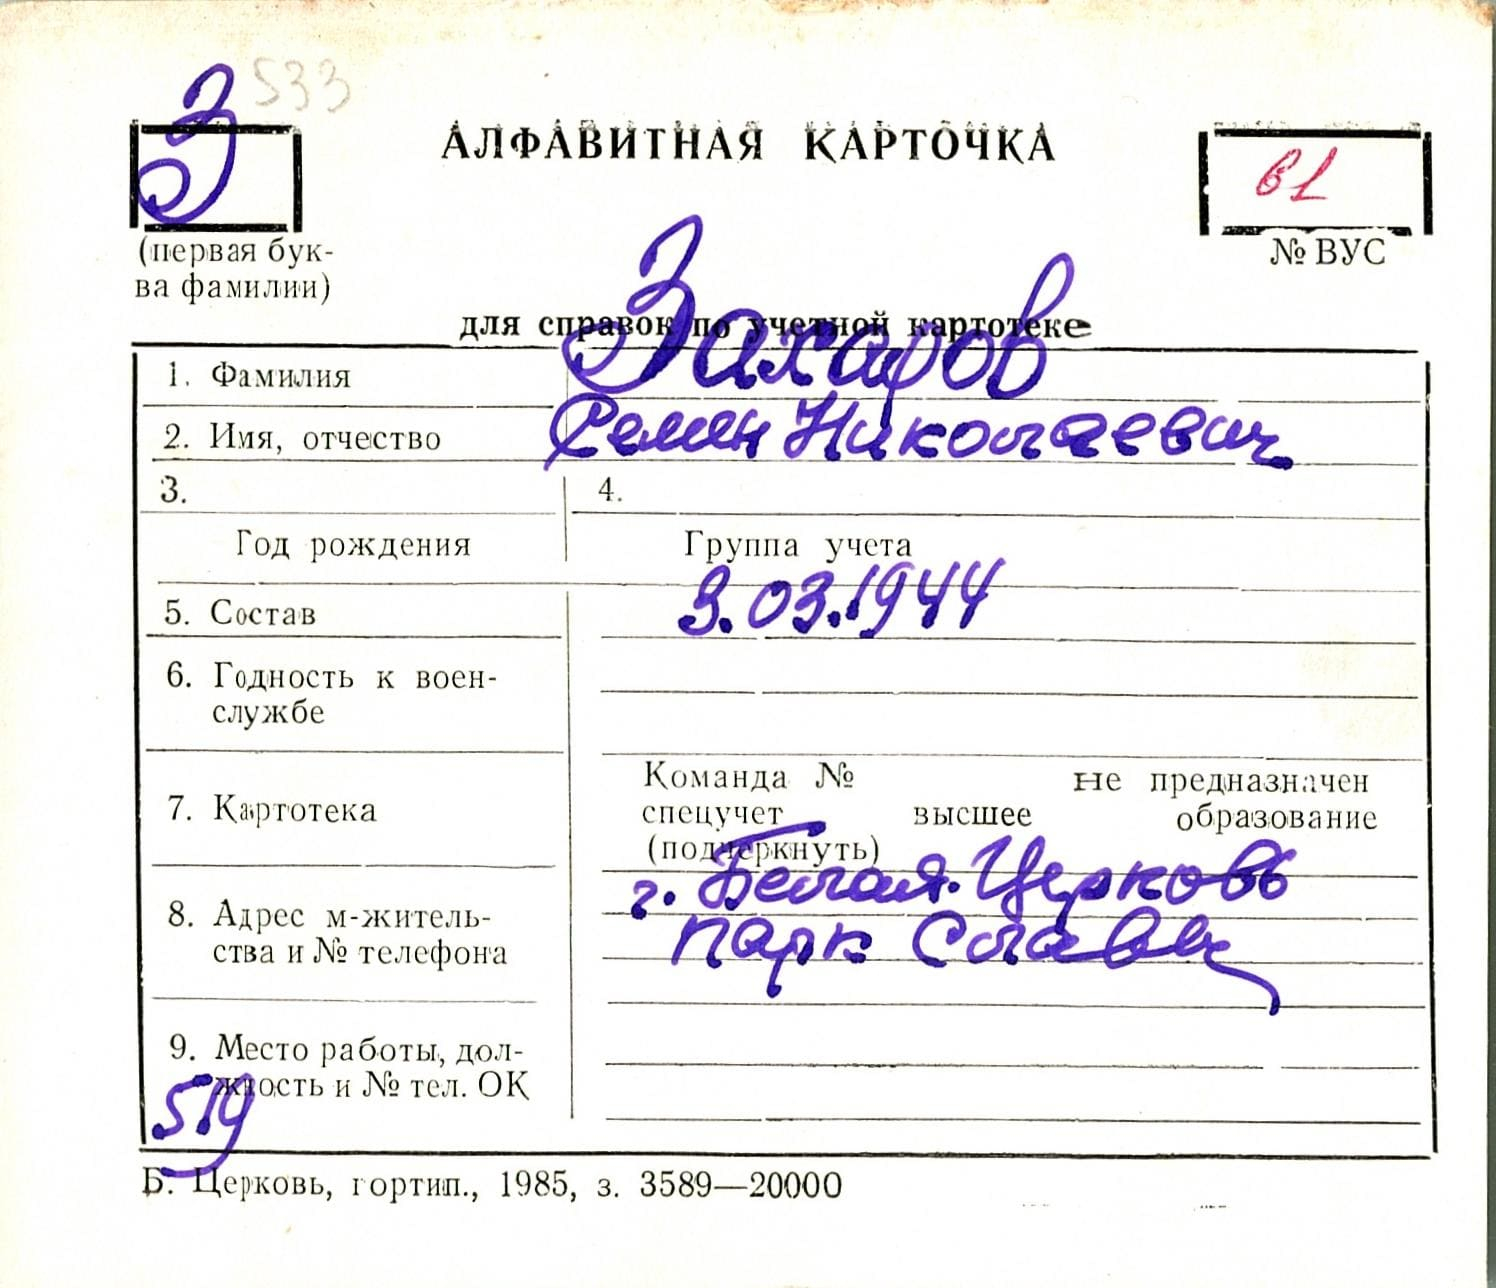 З 533
АЛФАВИТНАЯ КАРТОЧКА
61
(первая бук-
ва фамилии)
№ ВУС
для справок по учетной картотеке
1. Фамилия Захаров
2. Имя, отчество Семен Николаевич
3. 4.
Год рождения Группа учета
5. Состав 3.03.1944
6. Годность к воен-
службе
7. Картотека
Команда № не предназначен
спецучет высшее образование
(подчеркнуть)
8. Адрес м-житель-
ства и № телефона
г. Белая Церковь
парк Славы
9. Место работы, дол-
жность и № тел. ОК
519
Б. Церковь, гортип., 1985, з. 3589—20000